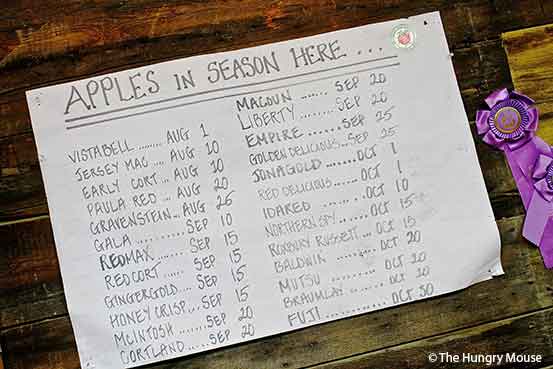 APPLES IN SEASON HERE ...
VISTABELL ........ AUG 1
JERSEY MAC ... AUG 10
EARLY CORT ... AUG 10
PAULA RED ... AUG 20
GRAVENSTEIN ... AUG 25
GALA ......... SEP 10
REDMAX ...... SEP 15
REDCORT ..... SEP 15
GINGERGOLD ... SEP 15
HONEY CRISP ... SEP 15
MCINTOSH ...... SEP 20
CORTLAND ...... SEP 20
MACOUN ....... SEP 20
LIBERTY ....... SEP 20
EMPIRE ....... SEP 25
GOLDEN DELICIOUS ... SEP 25
JONAGOLD ....... OCT 1
RED DELICIOUS ..... OCT 1
IDARED ......... OCT 10
NORTHERN SPY ...... OCT 15
ROXBURY RUSSETT ... OCT 15
BALDWIN ....... OCT 20
MUTSU ......... OCT 20
BRAUMLAY ...... OCT 20
FUJI .......... OCT 30
© The Hungry Mouse